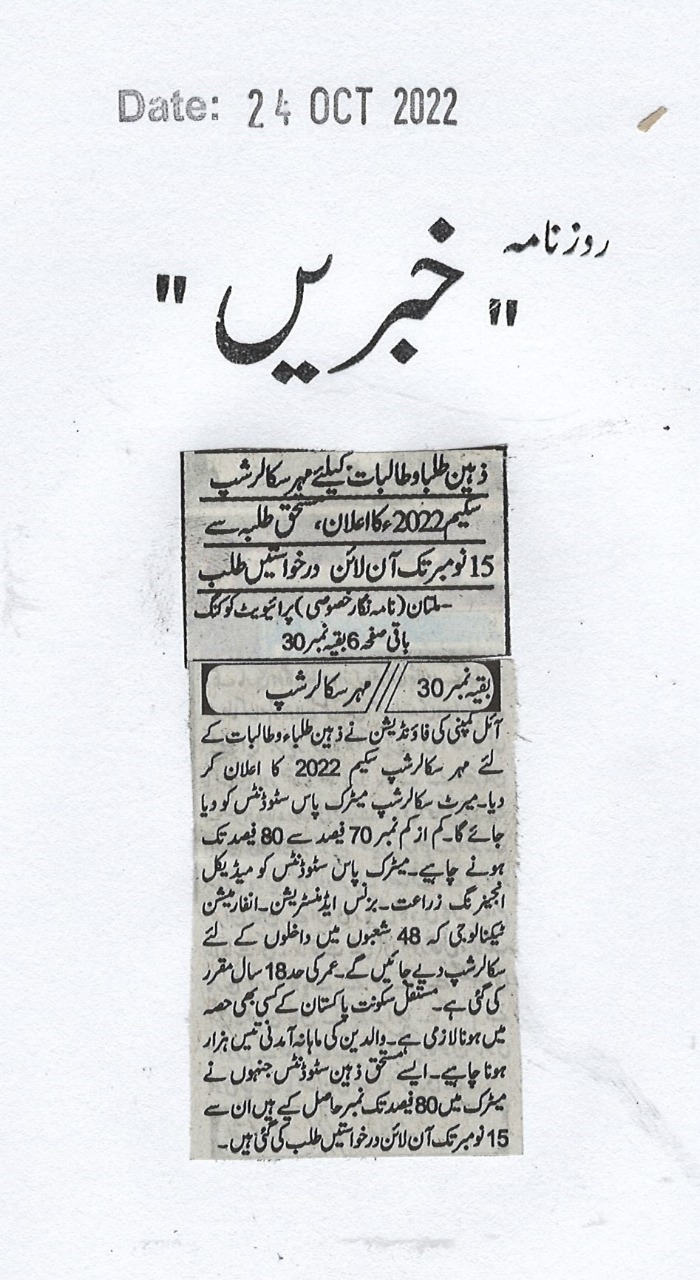 Date: 24 OCT 2022
روزنامہ
"خبریں"
ذہین طلبا و طالبات کیلئے مہر سکالر شپ
سکیم 2022ء کا اعلان، مستحق طلبہ سے
15 نومبر تک آن لائن درخواستیں طلب
ملتان (نامہ نگار خصوصی) پرائیویٹ کوکنگ
باقی صفحہ 6 بقیہ نمبر 30
بقیہ نمبر 30 /// مہر سکالر شپ
آئل کمپنی کی فاؤنڈیشن نے ذہین طلباء و طالبات کے
لئے مہر سکالرشپ سکیم 2022 کا اعلان کر
دیا۔ میرٹ سکالرشپ میٹرک پاس سٹوڈنٹس کو دیا
جائے گا۔ کم از کم نمبر 70 فیصد سے 80 فیصد تک
ہونے چاہیے۔ میٹرک پاس سٹوڈنٹس کو میڈیکل
انجینرنگ زراعت۔ بزنس ایڈمنسٹریشن۔ انفارمیشن
ٹیکنالوجی کہ 48 شعبوں میں داخلوں کے لئے
سکالرشپ دیے جائیں گے۔ عمر کی حد 18 سال مقرر
کی گئی ہے۔ مستقل سکونت پاکستان کے کسی بھی حصہ
میں ہونا لازمی ہے۔ والدین کی ماہانہ آمدنی تیس ہزار
ہونا چاہیے۔ ایسے مستحق ذہین سٹوڈنٹس جنہوں نے
میٹرک میں 80 فیصد تک نمبر حاصل کیے ہیں ان سے
15 نومبر تک آن لائن درخواستیں طلب کی گئی ہیں۔